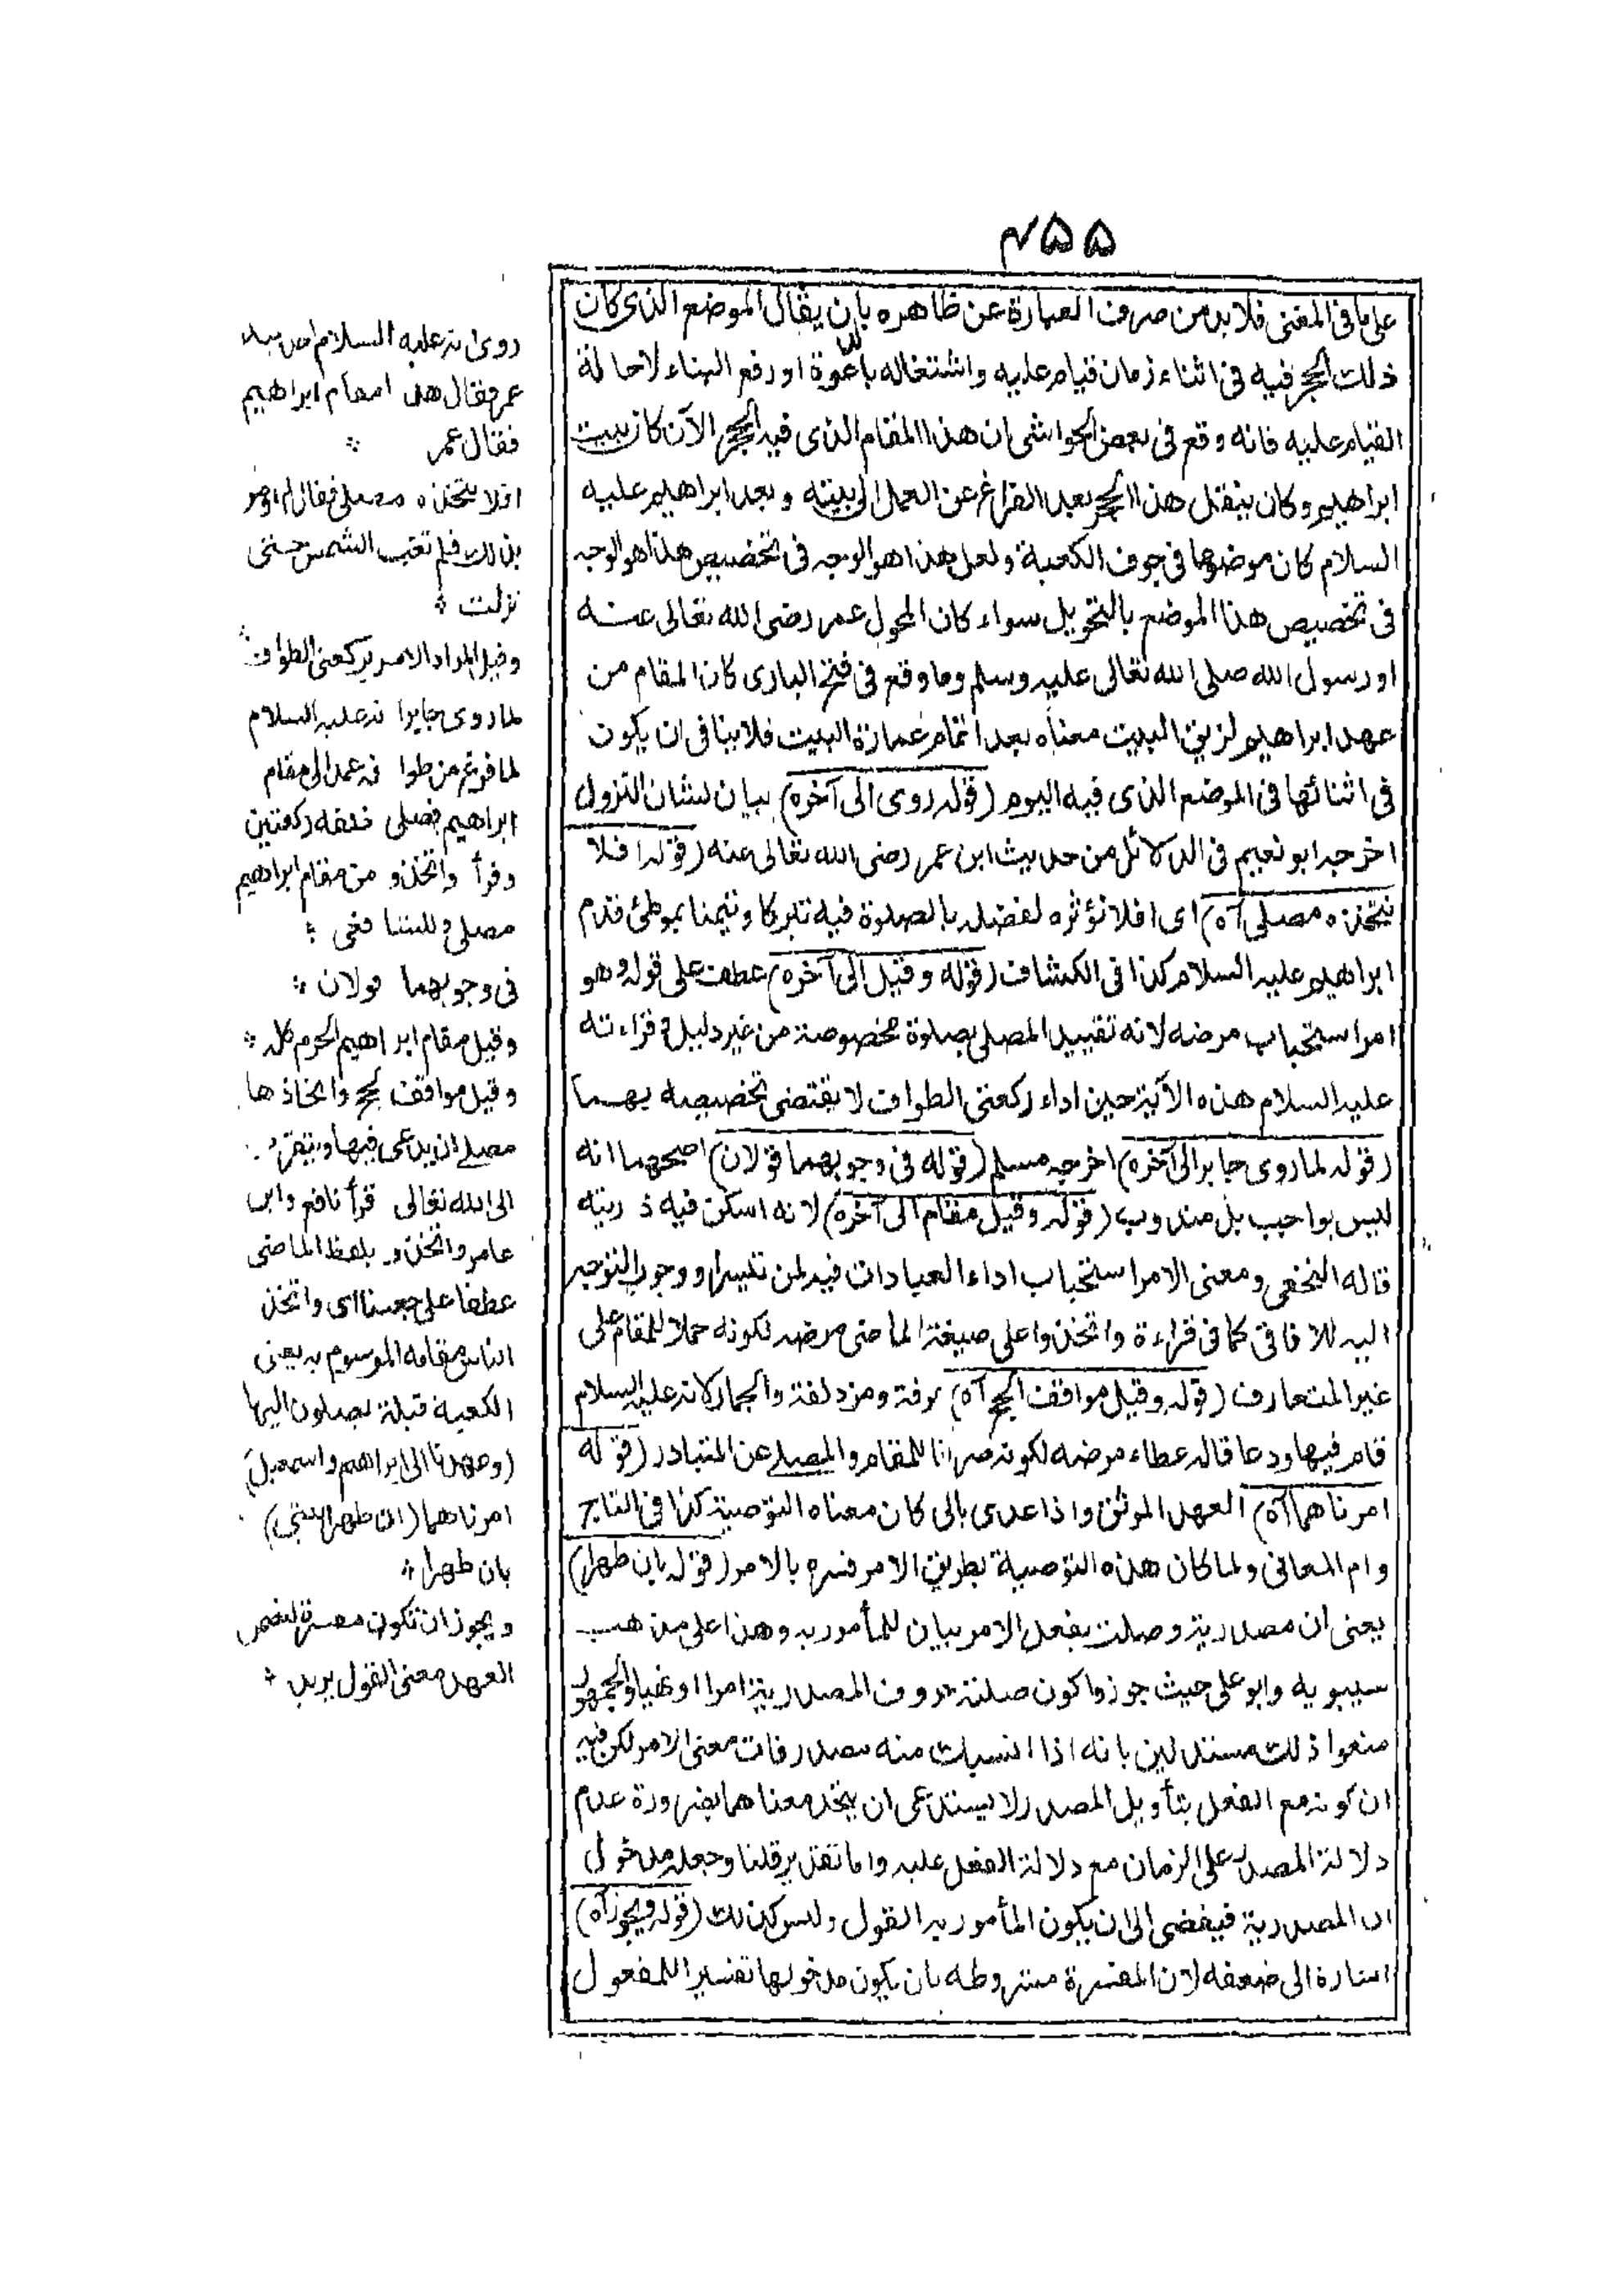 ٤٥٥
على ما فى المغنى فلابد من صرف العبارة عن ظاهره بان يقال الموضع الذى كان
ذلك الحجر فيه فى اثناء زمان قيامه عليه واشتغاله بالدعوة او رفع البناء لا حالة
القيام عليه فانه وقع فى بعض الحواشى ان هذا المقام الذى فيه الحجر الآن كان بيت
ابراهيم وكان ينقل هذا الحجر بعد الفراغ عن العمل الى بيته وبعد ابراهيم عليه
السلام كان موضوعا فى جوف الكعبة ولعل هذا هو الوجه فى تخصيص هذا هو الوجه
فى تخصيص هذا الموضع بالتحويل سواء كان المحول عمر رضى الله تعالى عنه
او رسول الله صلى الله تعالى عليه وسلم وما وقع فى فتح البارى كان المقام من
عهد ابراهيم لزيق البيت معناه بعد اتمام عمارة البيت فلا ينافى ان يكون
فى اثنائها فى الموضع الذى فيه اليوم (قوله روى الى آخره) بيان لشان النزول
اخرجه ابو نعيم فى الدلائل من حديث ابن عمر رضى الله تعالى عنه (قوله افلا
نتخذه مصلى آه) اى افلا نؤثره لفضله بالصلوة فيه تبركا وتيمنا بموطئ قدم
ابراهيم عليه السلام كذا فى الكشاف (قوله وقيل الى آخره) عطف على قوله وهو
امر استحباب مرضه لانه تقييد المصلى بصلوة مخصوصة من غير دليل وقراءته
عليه السلام هذه الآية حين اداء ركعتى الطواف لا يقتضى تخصيصه بهما
(قوله لما روى جابر الى آخره) اخرجه مسلم (قوله فى وجوبهما قولان) اصحهما انه
ليس بواجب بل مندوب (قوله وقيل مقام الى آخره) لانه اسكن فيه ذريته
قاله النخعى ومعنى الامر استحباب اداء العبادات فيه لمن تيسر او وجوب التوجه
اليه للآفاقى كما فى قراءة واتخذوا على صيغة الماضى مرضه لكونه حملا للمقام على
غير المتعارف (قوله وقيل مواقف الحج آه) عرفة ومزدلفة والجمار لانه عليه السلام
قام فيها ودعا قاله عطاء مرضه لكونه صرفا للمقام والمصلى عن المتبادر (قوله
امرناهما آه) العهد الموثق واذا عدى بالى كان معناه التوصية كذا فى التاج
وام المعانى ولما كان هذه التوصية بطريق الامر فسره بالامر (قوله بان طهرا)
يعنى ان مصدرية وصلت بفعل الامر بيان للمأمور به وهذا على مذهب
سيبويه وابو على حيث جوزوا كون صلة حروف المصدرية امرا او نهيا والجمهور
منعوا ذلك مستدلين بانه اذا انسبك منه مصدر فات معنى الامر لكن فيه
ان كونه مع الفعل بتأويل المصدر لا يستدعى ان يتحد معناهما بضرورة عدم
دلالة المصدر على الزمان مع دلالة الفعل عليه واما تقدير قلنا وجعله مدخول
ان المصدرية فيفضى الى ان يكون المأمور به القول وليس كذلك (قوله ويجوز آه)
اشارة الى ضعفه لان المفسرة مشروطة بان يكون مدخولها تفسيرا للمفعول
روى انه عليه السلام اخذ بيد
عمر فقال هذا مقام ابراهيم
فقال عمر
افلا نتخذه مصلى فقال لم اومر
بذلك فلم تغب الشمس حتى
نزلت
وقيل المراد الامر بركعتى الطواف
لما روى جابر انه عليه السلام
لما فرغ من طوافه عمد الى مقام
ابراهيم فصلى خلفه ركعتين
وقرأ واتخذوا من مقام ابراهيم
مصلى وللشافعى
فى وجوبهما قولان
وقيل مقام ابراهيم الحرم كله
وقيل مواقف الحج واتخاذها
مصلى ان يدعى فيها ويتقرب
الى الله تعالى قرأ نافع وابن
عامر واتخذوا بلفظ الماضى
عطفا على جعلنا اى واتخذ
الناس مقامه الموسوم به يعنى
الكعبة قبلة يصلون اليها
(وعهدنا الى ابراهيم واسمعيل)
امرناهما (ان طهرا بيتى)
بان طهرا
ويجوز ان تكون مفسرة لتضمن
العهد معنى القول يريد